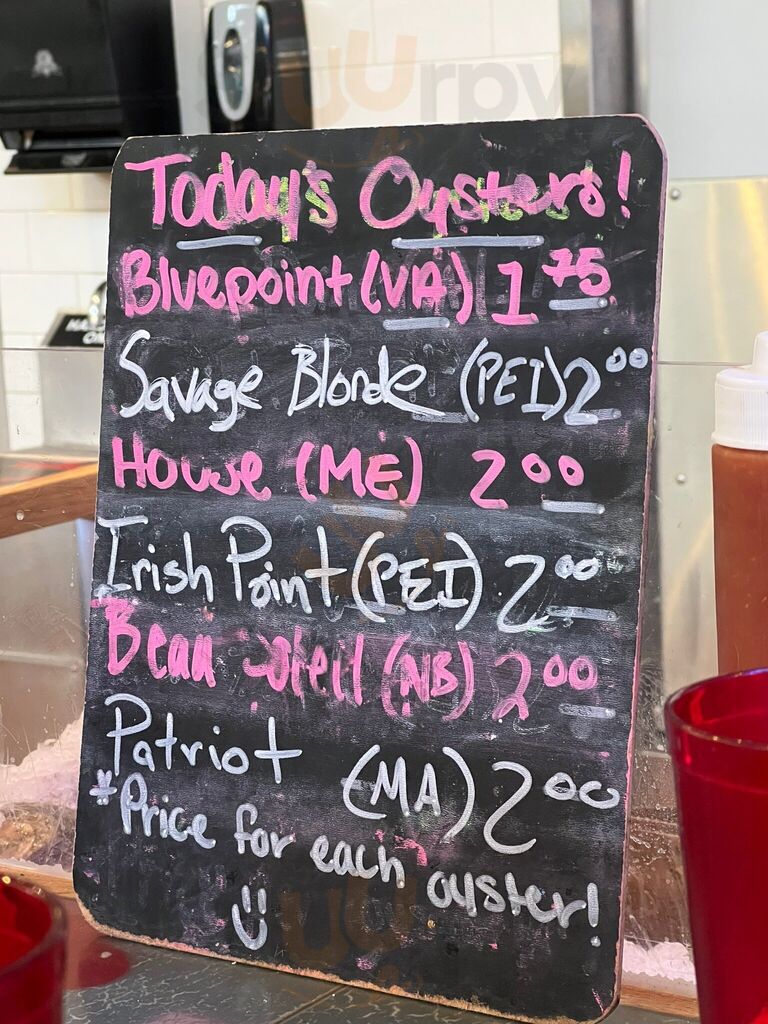 Today's Oysters!
Bluepoint (VA) 1.75
Savage Blonde (PEI) 2.00
House (ME) 2.00
Irish Point (PEI) 2.00
Beau Soleil (NB) 2.00
Patriot (MA) 2.00
*Price for each oyster!